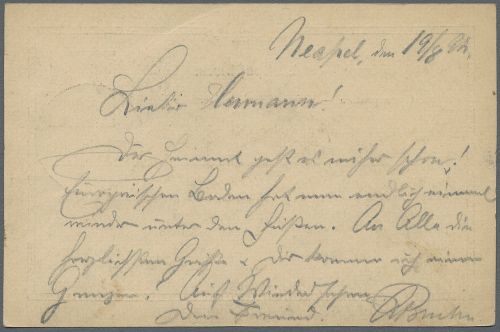 Neapel, den 19/8
Lieber Hermann!
Der Heimat geht es näher schon!
Europäischen Boden hat man endlich einmal
wieder unter den Füßen. An Alle die
herzlichsten Grüße & Dir besonders noch einen
Auf Wiedersehen
Dein Freund.